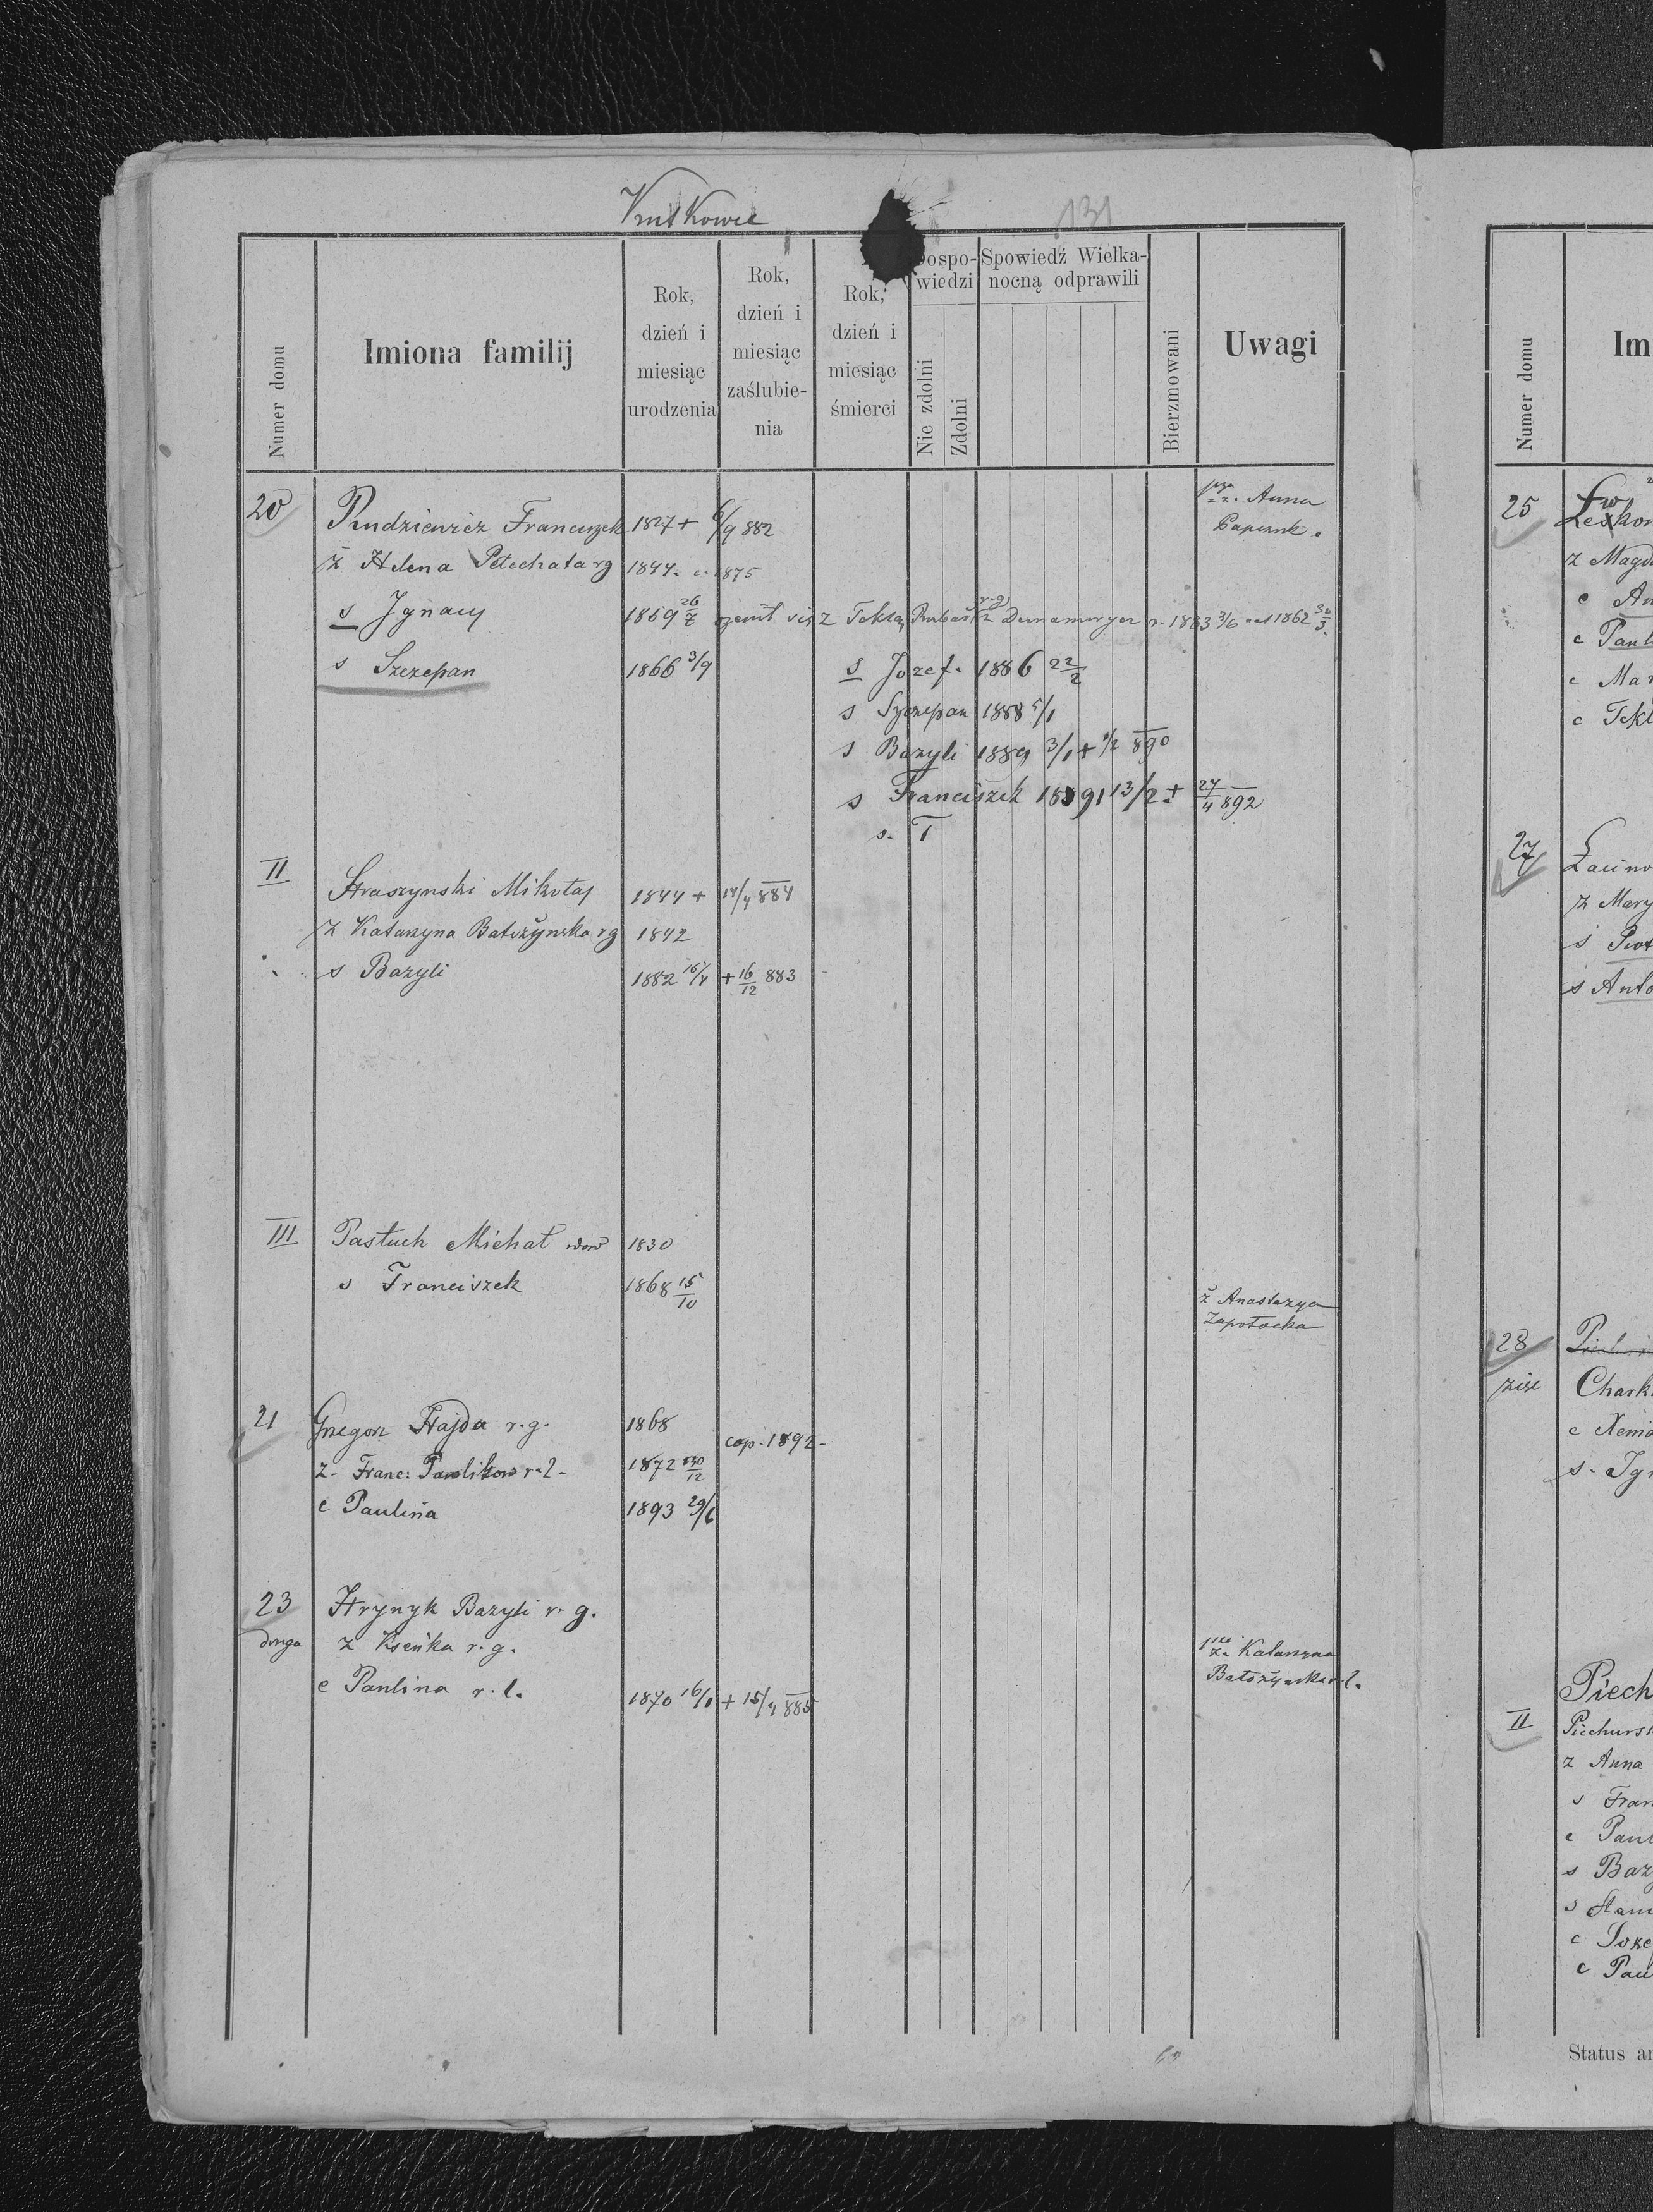 131
Numer domu
Imiona familij
Rok, dzień i miesiąc urodzenia
Rok, dzień i miesiąc zaślubie-nia
Rok, dzień i miesiąc śmierci
Dospo-wiedzi
Nie zdolni
Zdolni
Spowiedź Wielka-nocną odprawili
Bierzmowani
Uwagi
20 Rudziewicz Franciszek 1827 + 6/9 882 Anna
ż Helena Petechata rg 1844. c. 1875
s Ignacy 1859 26/7 żenił się z Teklą r.g. r. 1883 3/6 nat 1862 30/3
s Szczepan 1866 3/9 s Jozef. 1886 22/2
s Szczepan 1888 5/1
s Bazyli 1889 3/1 + 1/2 890
s Franciszek 1891 13/2 + 27/4 892
s. T
II Straszynski Mikołaj 1844 + 14/4 884
ż Katarzyna Batożynska rg 1842
s Bazyli 1882 + 16/12 883
III Pastuch Michał wdow 1830
s Franciszek 1868 15/10
ż Anastazya
Zapotocka
21 Grzegorz Hajda r.g. 1868
cop. 1892.
ż. Franc: Pawlikow r.l. 1872 30/12
c Paulina 1893 29/6
23 Hrynyk Bazyli r. g.
druga ż Kseńka r.g. 1sza ż. Katarzyna
c Paulina r.l. 1870 16/1 + 15/4 885 Batożynska r.l.
Numer domu
Im
25
z Magd
c An
c Paul
c Mar
c Tekl
27
z Mary
s Piot
s Anto
28
niże Chark
c Xenia
s. Ign
Piech
II Piechurs
z Anna
s Fran
c Paul
s Baz
s Stani
c Joze
c Pau
Status an